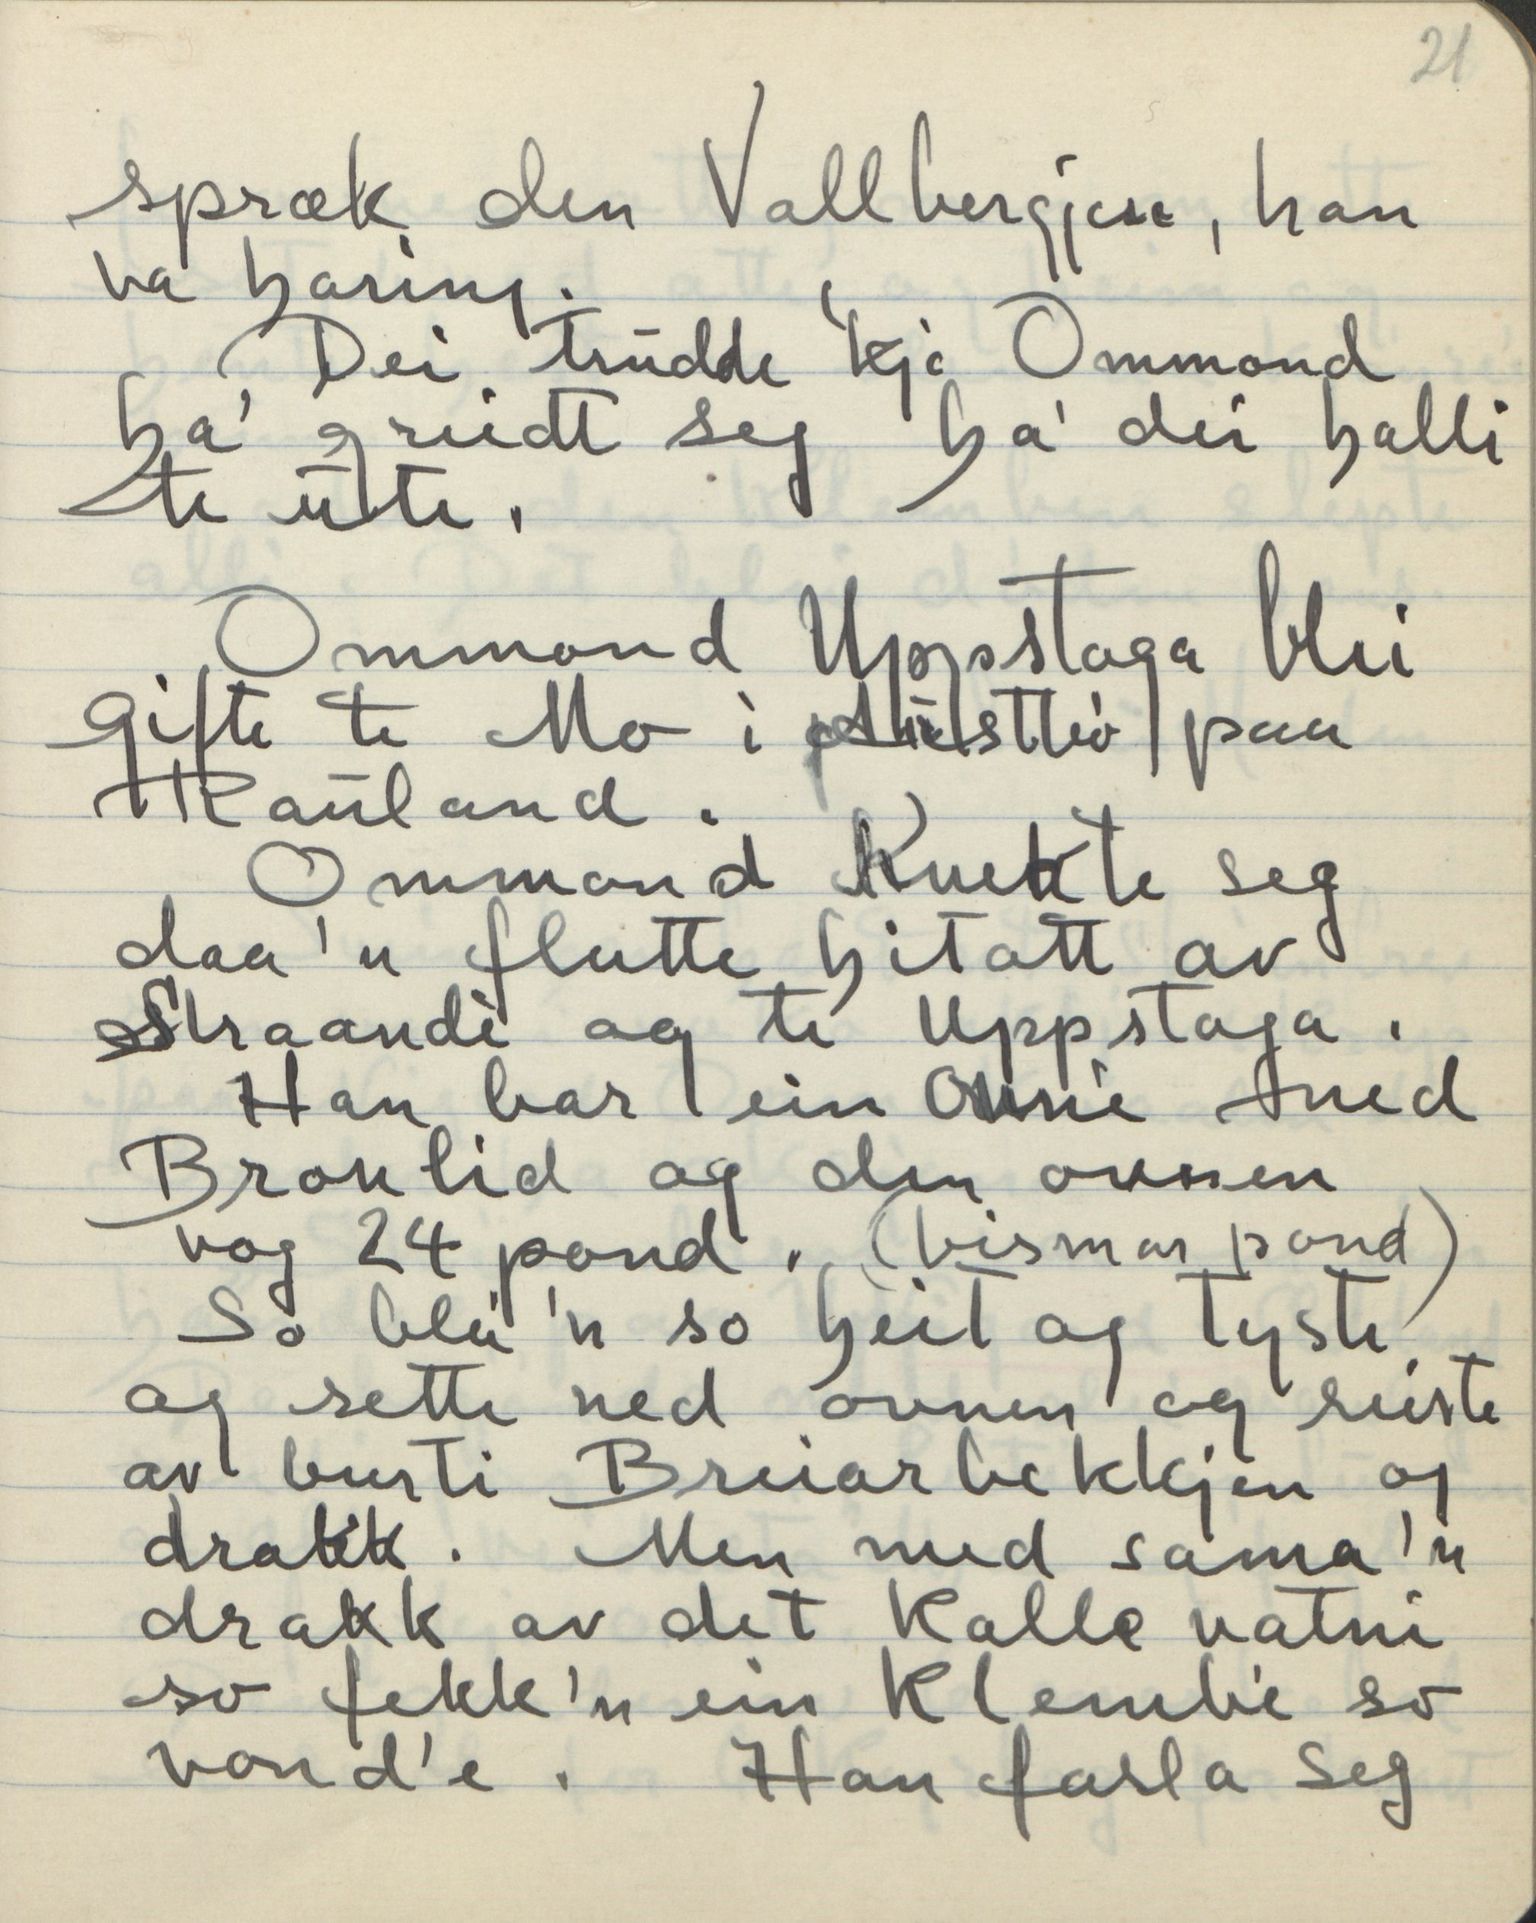 21
spræk den Vallbergjen, han
va haring.
Dei trudde 'kje Ommond
ha' greidt seg ha' dei halli
te ute.
Ommond Uppstaga blei
gifte te Mo i Austbø paa
Rauland.
Ommond knekte seg
daa'n flutte hitatt av
Straandè og te Uppstaga.
Han bar ein omnè med
Broklid og den ovnen
vog 24 pond. (bismar pond)
So blei'n so heit og tyste
og sette ned ovnen og reiste
av burti Breiarbekkjen og
drakk. Men med sama'n
drakk av det kalle vatni
so fekk'n ein klembè so
vond'e. Han fasla seg